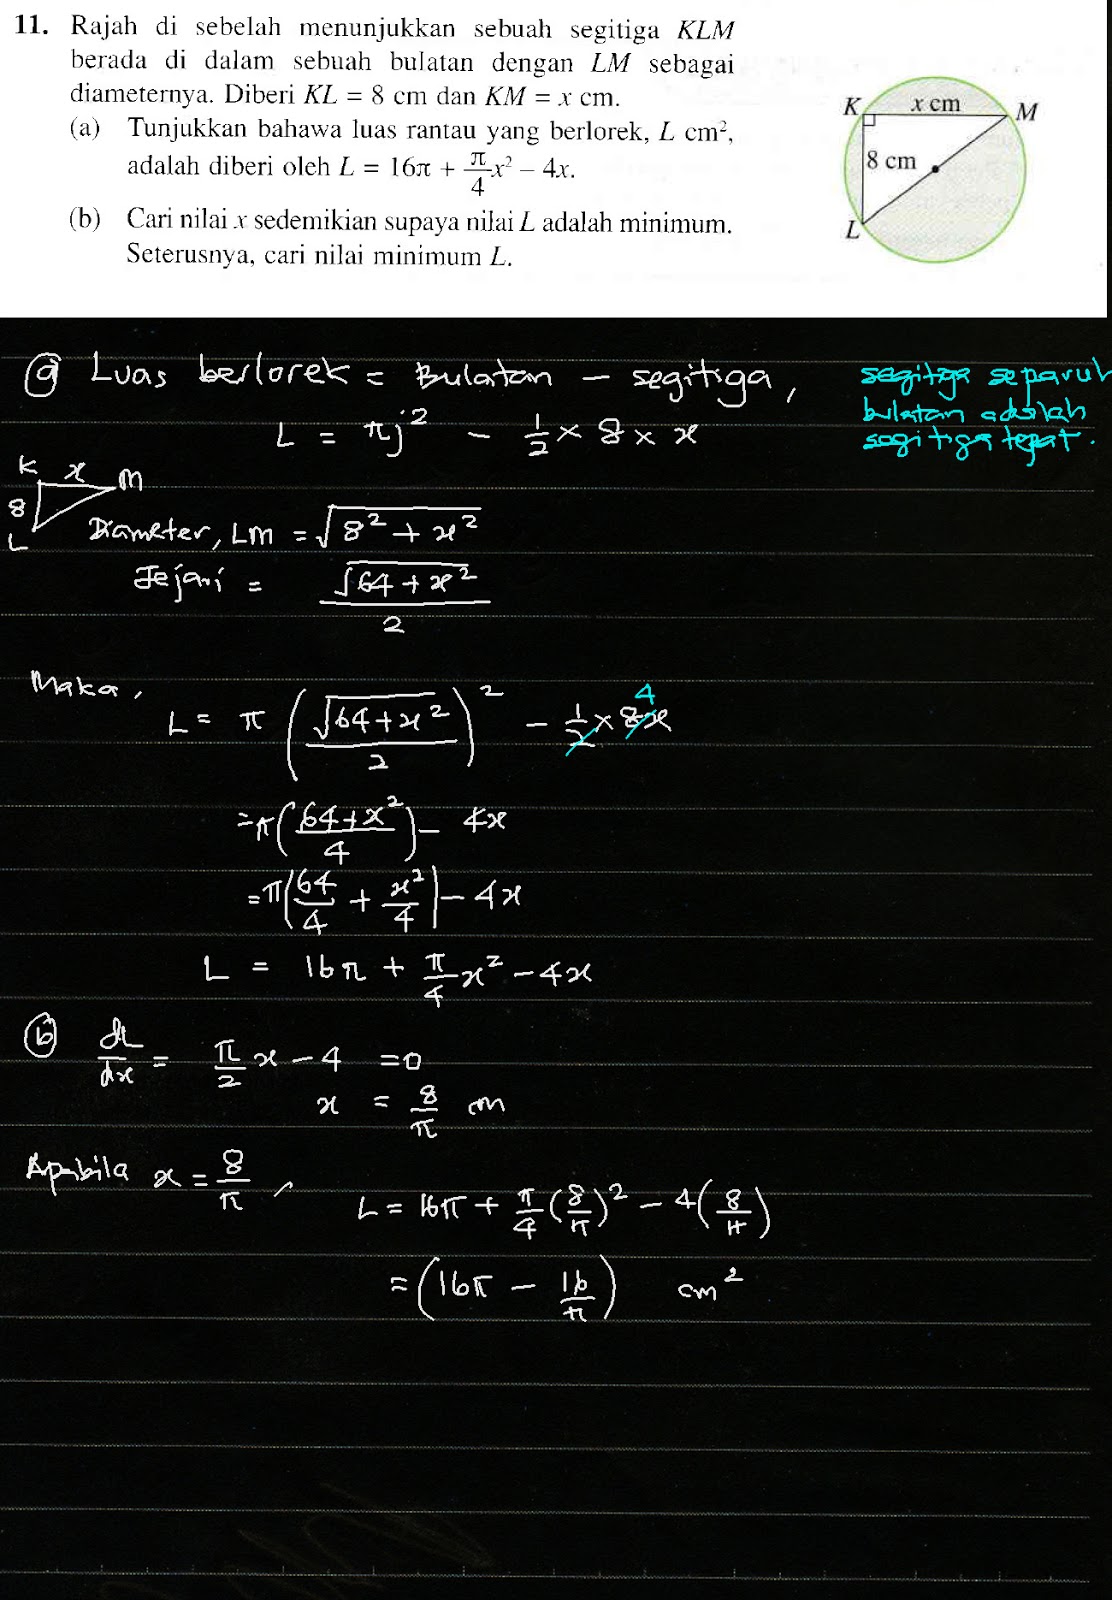 11. Rajah di sebelah menunjukkan sebuah segitiga KLM
berada di dalam sebuah bulatan dengan LM sebagai
diameternya. Diberi KL = 8 cm dan KM = x cm.
(a) Tunjukkan bahawa luas rantau yang berlorek, L cm²,
adalah diberi oleh L = 16π + π/4 x² – 4x.
(b) Cari nilai x sedemikian supaya nilai L adalah minimum.
Seterusnya, cari nilai minimum L.
K x cm M
8 cm
L
(a) Luas berlorek = Bulatan – segitiga,
L = πj² – 1/2 × 8 × x
segitiga separuh
bulatan adalah
segitiga tepat.
K x M
8
L
Diameter, LM = √(8² + x²)
Jejari = √(64 + x²)/2
Maka,
L = π (√(64 + x²)/2)² – 1/2 × 8x
4
= π((64 + x²)/4) – 4x
= π(64/4 + x²/4) – 4x
L = 16π + π/4 x² – 4x
(b) dL/dx = π/2 x – 4 = 0
x = 8/π cm
Apabila x = 8/π,
L = 16π + π/4 (8/π)² – 4(8/π)
= (16π – 16/π) cm²